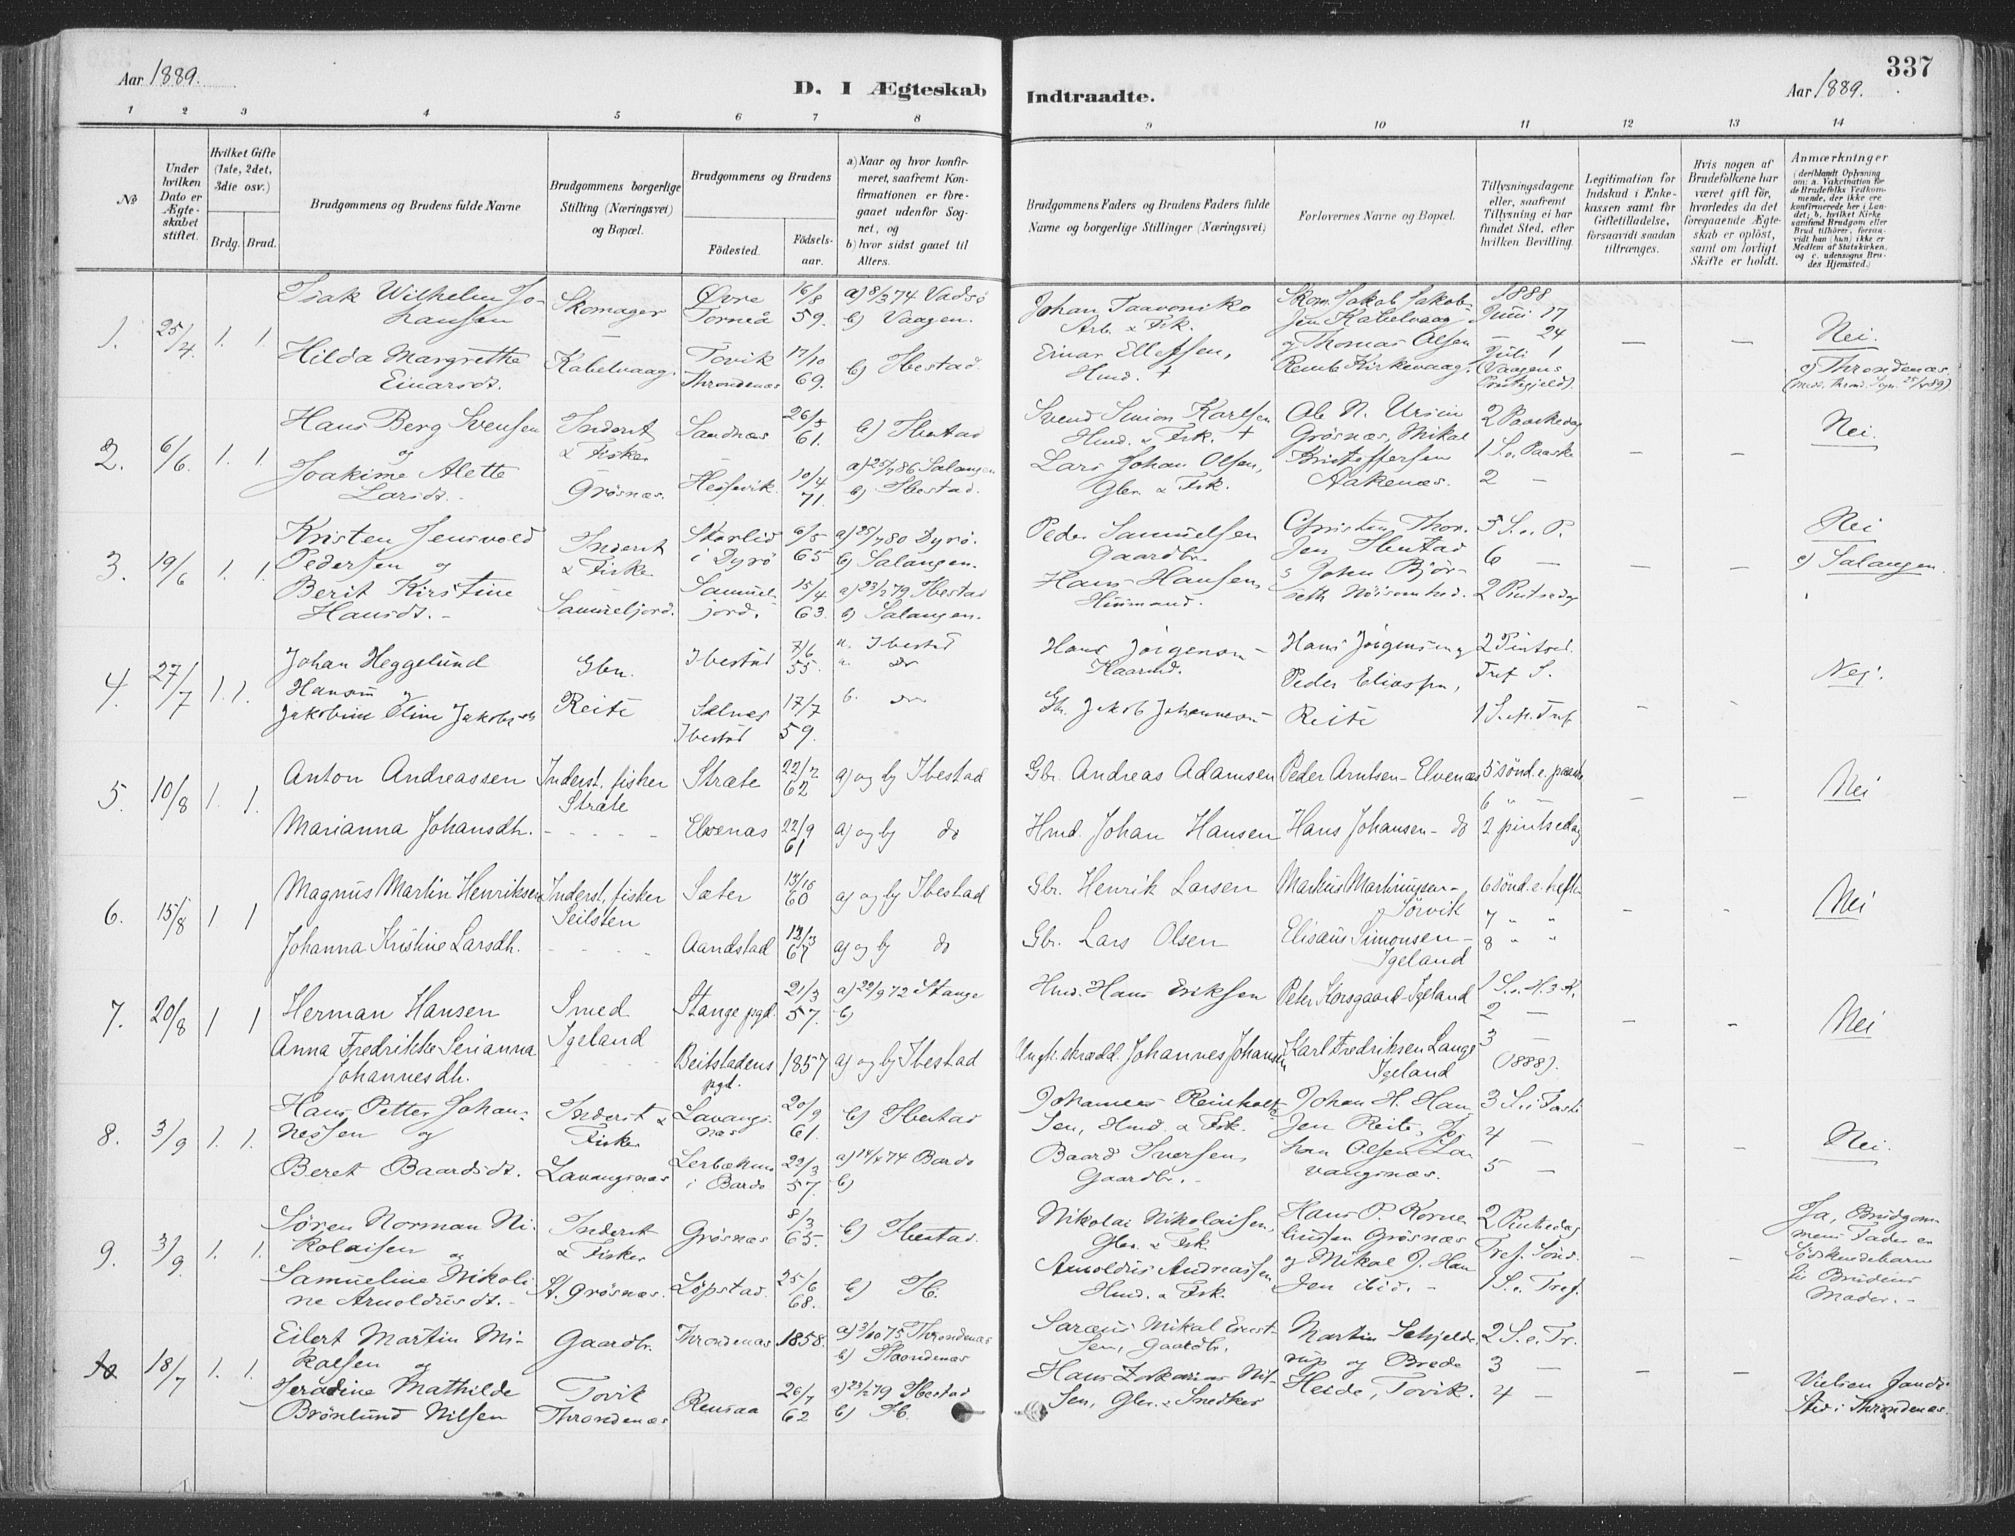 Aar 1889.
D. I Ægteskab Indtraadte.
Aar 1889.
337
1 2 3 4 5 6 7 8 9 10 11 12 13 14
No
Under hvilken Dato er Ægteskabet stiftet.
Hvilket Gifte (1ste, 2det, 3die osv.)
Brdg. Brud.
Brudgommens og Brudens fulde Navne
Brudgommens borgerlige Stilling (Næringsvei) og Bopæl.
Brudgommens og Brudens
Fødested.
Fødselsaar.
a) Naar og hvor konfirmeret, saafremt Konfirmationen er foregaaet udenfor Sognet, og
b) hvor sidst gaaet til Alters.
Brudgommens Faders og Brudens Faders fulde Navne og borgerlige Stillinger (Næringsvei)
Forlovernes Navne og Bopæl.
Tillysningsdagene eller, saafremt Tillysning ei har fundet Sted, efter hvilken Bevilling.
Legitimation for Indskud i Enkekassen samt for Giftetilladelse, forsaavidt saadan tiltrænges.
Hvis nogen af Brudefolkene har været gift før, hvorledes da det foregaaende Ægteskab er opløst, samt om lovligt Skifte er holdt.
Anmærkninger (deriblandt Oplysning om: a. Vakcination for de Brudefolks Vedkommende, der ikke ere konfirmerede her i Landet; b. hvilket Kirkesamfund Brudgom eller Brud tilhører, forsaavidt han (hun) ikke er Medlem af Statskirken, og c. udensogns Brudes Hjemsted.)
1. 25/4 1. 1.
Isak Wilhelm Johansen
Skomager
Øvre Torneå
16/8 59.
a) 8/3 74 Vadsø
b) Vaagen.
Johan Taavoniko
Arb. & Fisk.
Skom. Jakob Jakobsen Kabelvaag
1888
Juni 17
— 24
Juli 1
(Vaagens Præstegjeld)
— —
Nei.
Hilda Margrethe Einarsdt.
Kabelvaag.
Tovik Throndenæs
17/10 69.
b) Ibestad.
Einar Ellefsen,
Hmd. +
og Thomas Olsen
Kirkevaag.
c) Throndenæs.
2. 6/6. 1. 1.
Hans Berg Svensen og
Inderst & Fisker
Sandnæs
26/5 61.
b) Ibestad
Svend Simon Karlsen
Hmd. & Fisk. +
Ole N. Ursin Grøsnæs, Mikal Kristoffersen Aakenæs.
2 Paaskedag
1 S. e. Paaske
2 —
— —
Nei.
Joakime Alette Larsdt.
Grøsnæs.
10/4 71.
a) 25/7 86 Salangen
b) Ibestad.
Lars Johan Olsen,
Gbr. & Fisk.
3. 19/6 1. 1.
Kristen Jensvold Pedersen og
Inderst & Fisker
Skarlid i Dyrø
6/5 65
a) 25/7 80 Dyrø.
b) Salangen.
Peder Samuelsen
Gaardbr.
Christen Thorsen Ibestad
5 S. e. P.
6 —
2 Pintsedag
Nei
c) Salangen.
Berit Kirstine Hansdt.
Samueljord.
Samueljord.
15/4 63.
a) 23/7 79 Ibestad
b) Salangen.
Hans Hansen,
Husmand.
John Bjørseth Nøisomhed.
4. 27/7 1. 1.
Johan Heggelund Hansen og
Gbr.
Ibestad
7/6 55.
a. Ibestad
Hans Jørgensen
Kaarmd.
Hans Jørgensen og
2 Pintsed.
Tref S.
1 S. e. Tref.
— —
Nej.
Jakobine Oline Jakobsdt
Reite
Salnes Ibestad
17/7 59.
b. do
Gbr. Jakob Johannesen
Peder Eliassen, Reite
5. 10/8 1. 1.
Anton Andreassen
Inderst, fisker Stråte
Stråte
22/2 62
a) og b) Ibestad
Gbr. Andreas Adamsen
Peder Arntsen — Elvenæs
5 sønd. e. paaske
6 "
2 pintsedag
— —
Nei
Marianna Johansdh.
Elvenæs
22/9 61
a) og b) do
Hmd. Johan Hansen
Hans Johansen — do
6. 15/8 1 1
Magnus Martin Henriksen
Inderst, fisker Seilsten
Sæter
13/10 60
a) og b) Ibestad
Gbr. Henrik Larsen
Markus Martinussen — Sørvik
6 sønd. e. tref.
7 " "
8 " "
— —
Nei
Johanna Kristine Larsdh.
Aandstad
12/3 67
a) og b) do
Gbr. Lars Olsen
Elisæus Simonsen — Igeland
7. 20/8 1 1
Herman Hansen
Smed Igeland
Stange pgd.
21/3 57.
a) 29/9 72 Stange
b)
Hmd. Hans Eriksen
Peter Korsgaard — Igeland
1 S. e. H. 3 K.
2 —
3 —
(1888).
— —
Nei
Anna Fredrikke Serianna Johannesdh.
Beitstadens pgd.
1857
a) og b) Ibestad
Ungk. skrædd. Johannes Johansen
Karl Fredriksen Lange Igeland
8. 3/9 1. 1.
Hans Petter Johannessen og
Inderst & Fisker
Lavangsnæs
20/9 61.
b) Ibestad
Johannes Reinholtsen, Hmd. & Fsk.
Johan H. Hansen Reite, Johan Olsen Lavangsnæs.
3 S. i Faste
4 —
5 —
— —
Nei.
Beret Baardsdt.
Lavangsnæs
Lerbækmo i Bardo
29/3 57.
a) 14/7 74 Bardo
b)
Baard Iversen,
Gaardbr.
9. 3/9. 1. 1.
Søren Norman Nikolaisen og
Inderst & Fisker
Grøsnæs
8/3 65.
b) Ibestad.
Nikolai Nikolaisen,
Gbr. & Fsk.
Hans P. Korneliussen Grøsnæs
2 Pintsedag
Tref. Sønd.
1 S. e. Tref.
— —
Ja, Brudgommens Fader er Sødskendebarn til Brudens Moder.
Samueline Nikoline Arnoldusdt.
St. Grøsnæs.
Løpstad.
25/6 68.
b) Ib.
Arnoldus Andreassen,
Hmd. & Fsk.
og Mikal J. Hansen ibid.
10 18/7 1. 1.
Eilert Martin Mikalsen og
Gaardbr.
Throndenæs
1858.
a) 3/10 75 Throndenæs
b) Throndenæs
Saræus Mikal Evertsen, Gaardbr.
Martin Schjelderup og Brede Heide, Tovik.
2 S. e. Tr.
3 —
4 —
— —
Vielsen fandt Sted i Throndenæs.
Jeradine Mathilde Brønlund Nilsen
Tovik Throndenæs
Rensaa
26/7 62
a) 23/7 79 Ibestad
b) Ib.
Hans Zakarias Nilsen, Gbr. & Snedker